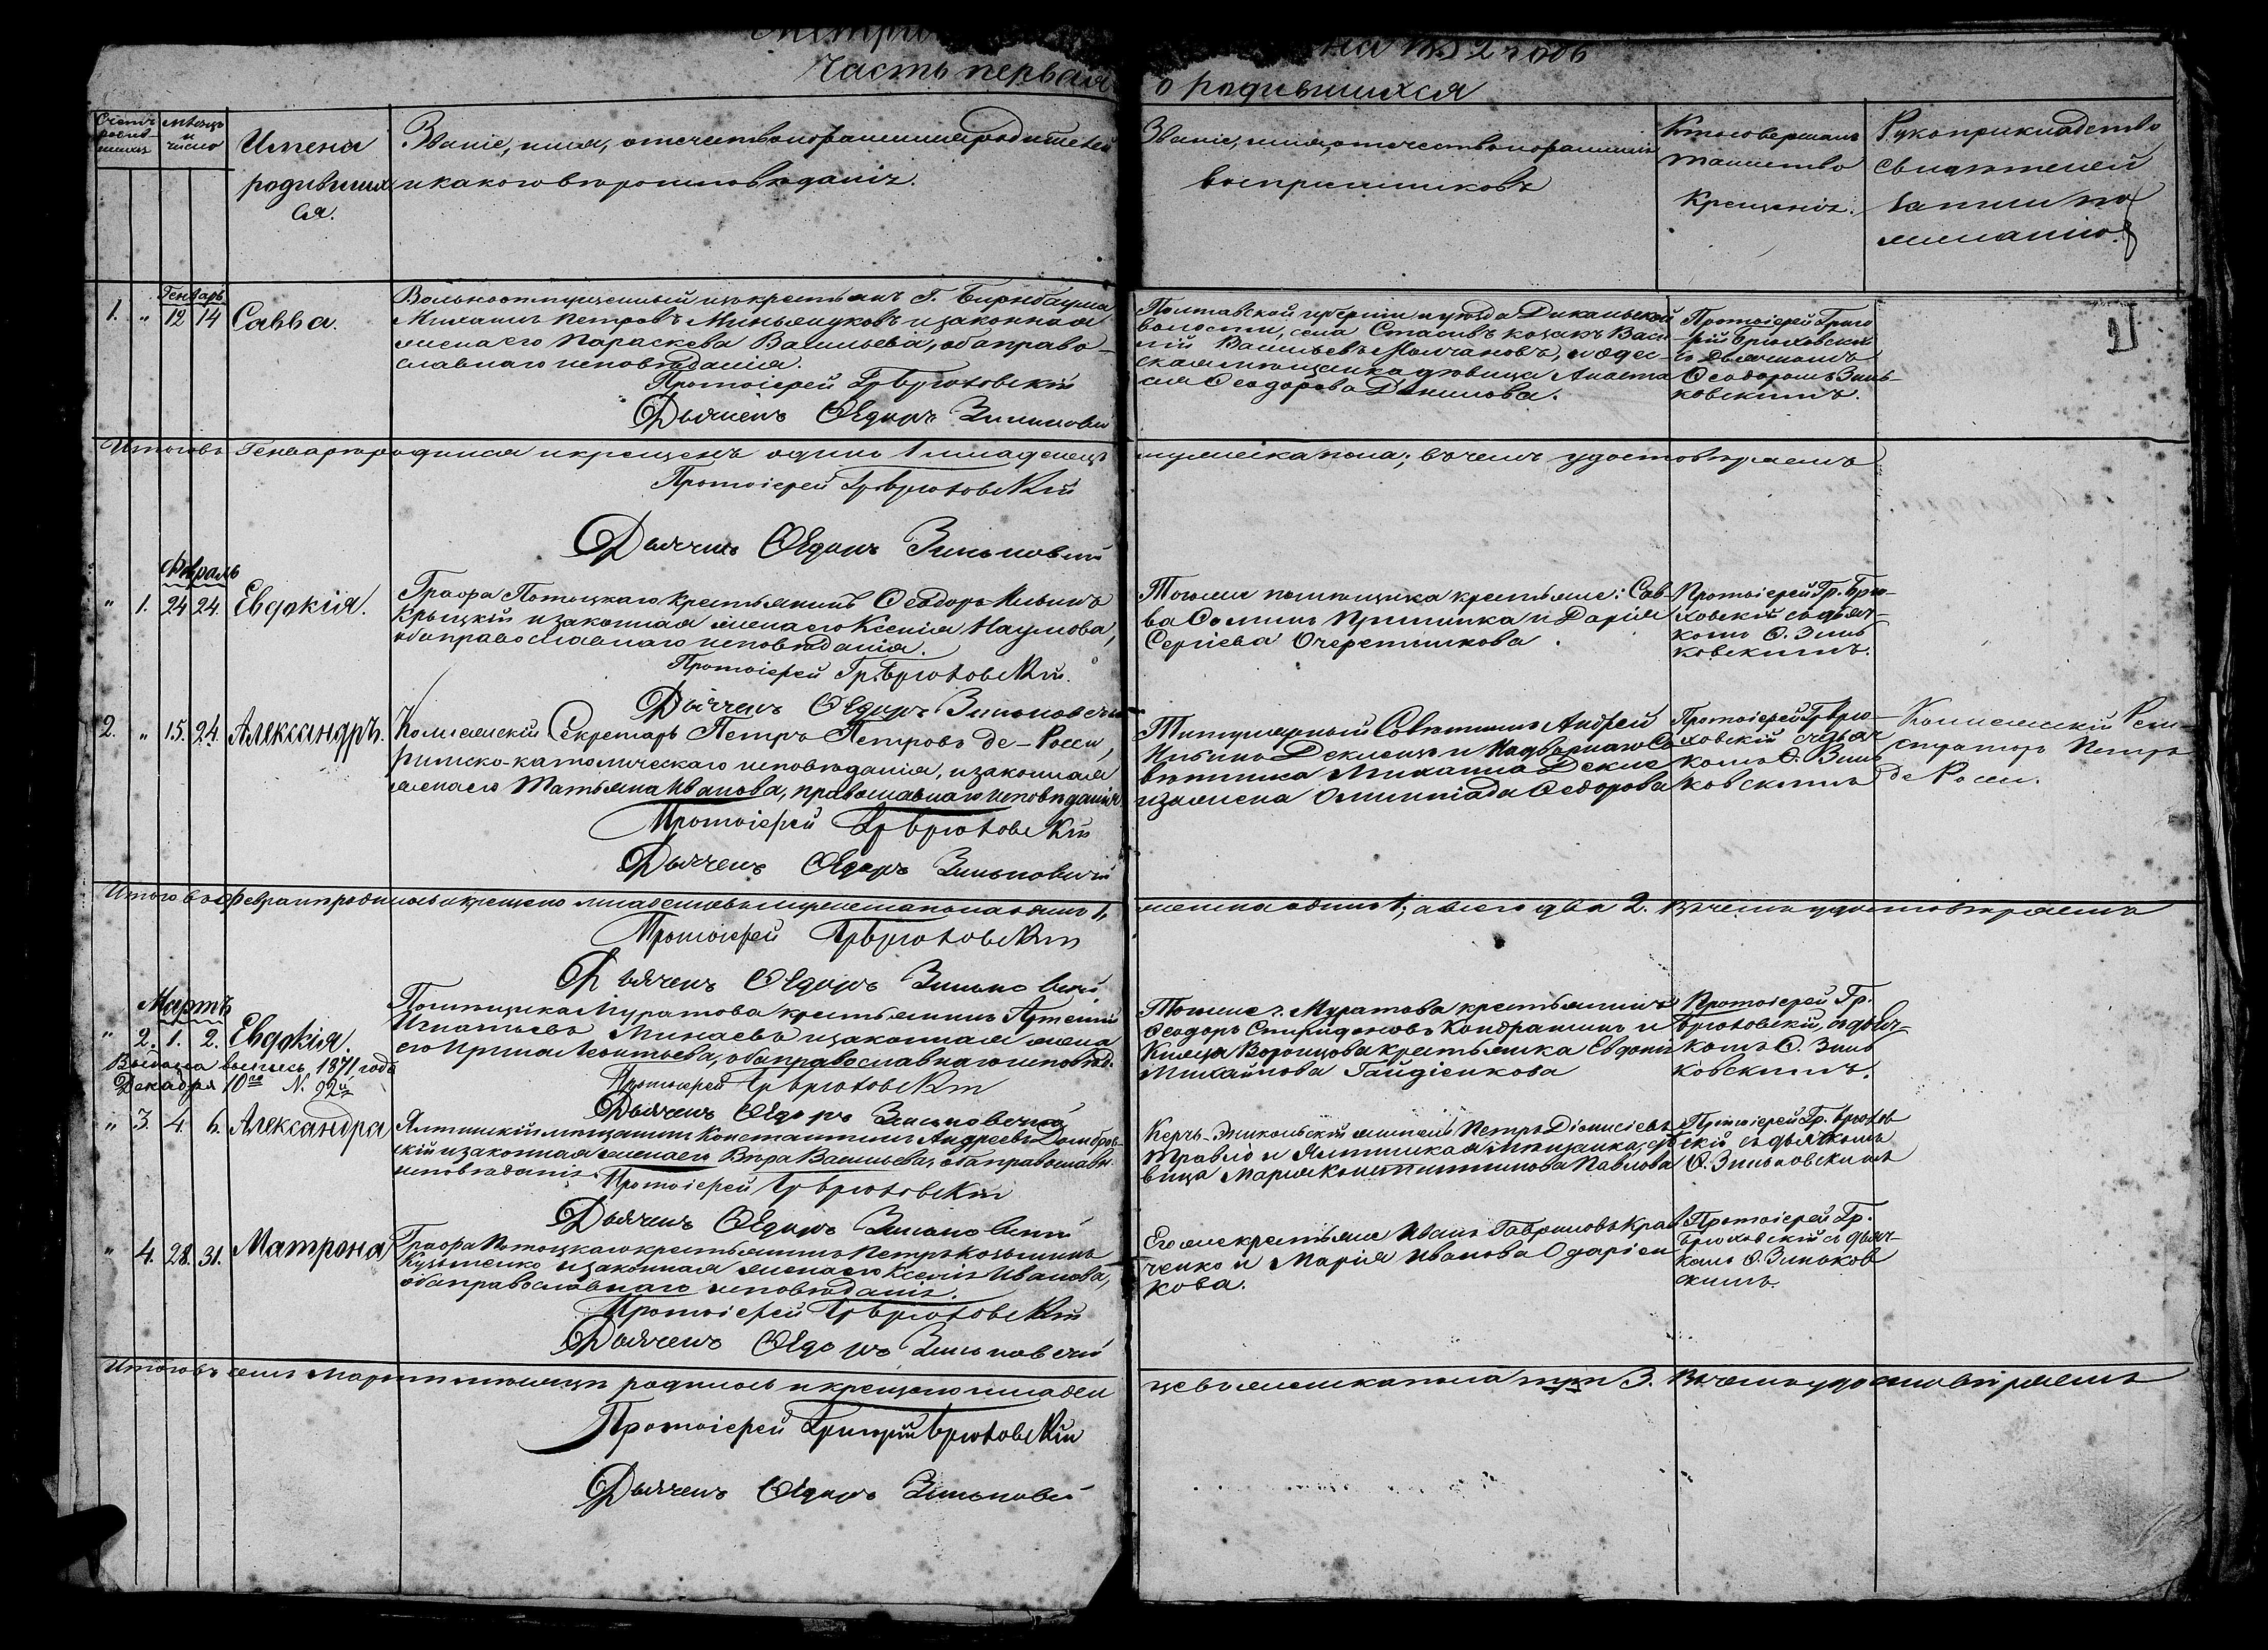 Часть первая
о родившихся
Счетъ
Мѣсяцъ
и
число
Имена
родивших
ся.
Званіе, имя, отечество и фамилія родителей
и какого вѣроисповѣданія.
Званіе, имя, отечество и фамилія
воспріемниковъ
Кто совершалъ
таинство
Крещенія.
Рукоприкладство
свидѣтелей
записи по
желанію.
Генварь
1. " 12 14 Савва.
Вольноотпущенный изъ крестьянъ Г.
Михаилъ Петровъ и законная
жена его Параскева Васильева, оба право-
славнаго исповѣданія.
Протоіерей Гр Брюховскій
Дьячекъ Ѳедоръ
Полтавской губерніи и уѣзда Диканьской
волости, села козакъ Васи-
лій Васильевъ Молчановъ, и одес-
ская мѣщанка дѣвица Анаста
сія Ѳеодорова
Протоіерей Григо
рій Брюховскій
съ дьячкомъ
Ѳеодоромъ Зинь-
ковскимъ.
1
Итого въ Генварѣ родился и крещенъ одинъ 1 младенецъ
мужеска пола; въ чемъ удостовѣряемъ
Протоіерей Гр Брюховскій
Дьячекъ Ѳедоръ Зиньковскій
Февраль
" 1. 24 24. Евдокія.
Графа Потоцкаго крестьянинъ Ѳеодоръ Ильинъ
Крыцкій и законная жена его Ксенія Наумова,
оба православнаго исповѣданія.
Протоіерей Гр. Брюховскій.
Дьячекъ Ѳедоръ Зиньковскій
Тогоже помѣщика крестьяне: Сав-
ва Ѳоминъ и Дарія
Сергіева Очеретникова.
Протоіерей Гр. Брю-
ховскій съ дьяч-
комъ Ѳ. Зинь
ковскимъ.
2. " 15. 24. Александръ.
Коллежскій Секретарь Петръ Петровъ де-Росси,
римско-католическаго исповѣданія, и законная
жена его Татьяна Иванова, православнаго исповѣданія
Протоіерей Гр Брюховскій
Дьячекъ Ѳедоръ Зиньковскій
Титулярный Совѣтникъ Андрей
и Надворнаго Со
вѣтника Михаила
жена Олимпіада Ѳедорова
Протоіерей Гр Брю-
ховскій съ дьяч
комъ Ѳ. Зинь
ковскимъ
Коллежскій Реги-
страторъ Петръ
де Росси.
Итого въ Февралѣ родилось и крещено младенцевъ мужеска пола одинъ 1,
женска одинъ 1, а всего два 2. Въ чемъ удостовѣряемъ
Протоіерей Гр Брюховскій
Дьячекъ Ѳедоръ Зиньковскій
Мартъ
" 2. 1. 2. Евдокія.
Выдана выпись 1871 года
Декабря 10го N. 92й
Помѣщика Муратова крестьянинъ Артемій
Игнатьевъ Минаевъ и законная жена
его Ирина Леонтьева, оба православнаго исповѣд.
Протоіерей Гр Брюховскій
Дьячекъ Ѳедоръ Зиньковскій
Тогоже г. Муратова крестьянинъ
Ѳеодоръ Спиридоновъ Кондрашинъ и
Князя Воронцова крестьянка Евдокія
Михайлова Гайдіенкова
Протоіерей Гр.
Брюховскій, съ дьяч-
комъ Ѳ. Зинь
ковскимъ.
" 3. 4. 6. Александра
Ялтинскій мѣщанинъ Константинъ Андреевъ Домбров-
скій и законная жена его Вѣра Васильева, оба православн.
исповѣданія.
Протоіерей Гр Брюховскій
Дьячекъ Ѳедоръ Зиньковскій
Керчь-Эникольскій житель Петръ Діонисіевъ
и Ялтинская мѣщанка, дѣ
вица Марія Константинова Павлова
Протоіерей Гр. Брюхов
скій съ дьячкомъ
Ѳ. Зиньковскимъ
" 4. 28. 31. Матрона
Графа Потоцкаго крестьянинъ Петръ Козьминъ
Кузьменко и законная жена его Ксенія Иванова,
оба православнаго исповѣданія.
Протоіерей Гр Брюховскій
Дьячекъ Ѳедоръ Зиньковскій
Его же крестьяне Иванъ Гавриловъ Крав
ченко и Марія Иванова Одаріен
кова.
Протоіерей Гр.
Брюховскій съ дьяч-
комъ Ѳ. Зиньков
скимъ.
Итого въ семъ Мартѣ мѣсяцѣ родилось и крещено младен
цевъ женска пола три 3. Въ чемъ удостовѣряемъ
Протоіерей Григорій Брюховскій
Дьячекъ Ѳедоръ Зиньковскій